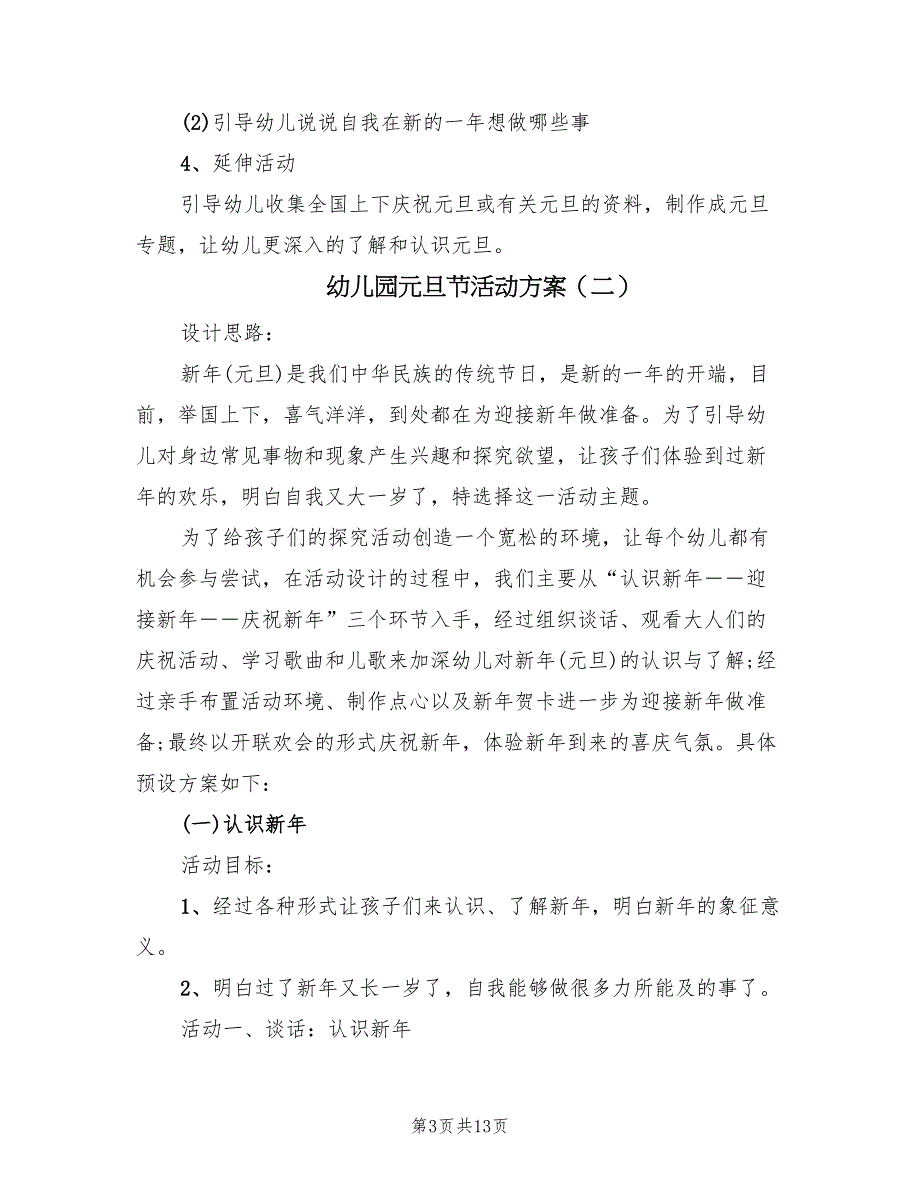 (2)引导幼儿说说自我在新的一年想做哪些事
4、延伸活动
引导幼儿收集全国上下庆祝元旦或有关元旦的资料，制作成元旦
专题，让幼儿更深入的了解和认识元旦。
幼儿园元旦节活动方案（二）
设计思路：
新年(元旦)是我们中华民族的传统节日，是新的一年的开端，目
前，举国上下，喜气洋洋，到处都在为迎接新年做准备。为了引导幼
儿对身边常见事物和现象产生兴趣和探究欲望，让孩子们体验到过新
年的欢乐，明白自我又大一岁了，特选择这一活动主题。
为了给孩子们的探究活动创造一个宽松的环境，让每个幼儿都有
机会参与尝试，在活动设计的过程中，我们主要从“认识新年――迎
接新年――庆祝新年”三个环节入手，经过组织谈话、观看大人们的
庆祝活动、学习歌曲和儿歌来加深幼儿对新年(元旦)的认识与了解;经
过亲手布置活动环境、制作点心以及新年贺卡进一步为迎接新年做准
备;最终以开联欢会的形式庆祝新年，体验新年到来的喜庆气氛。具体
预设方案如下：
(一)认识新年
活动目标：
1、经过各种形式让孩子们来认识、了解新年，明白新年的象征意
义。
2、明白过了新年又长一岁了，自我能够做很多力所能及的事了。
活动一、谈话：认识新年
第3页共13页